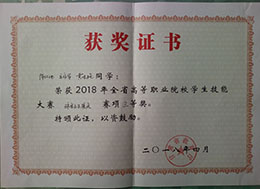 获奖证书
同学：
荣获2018年全省高等职业院校学生技能
大赛 赛项三等奖。
特颁此证，以资鼓励。
二〇一八年四月